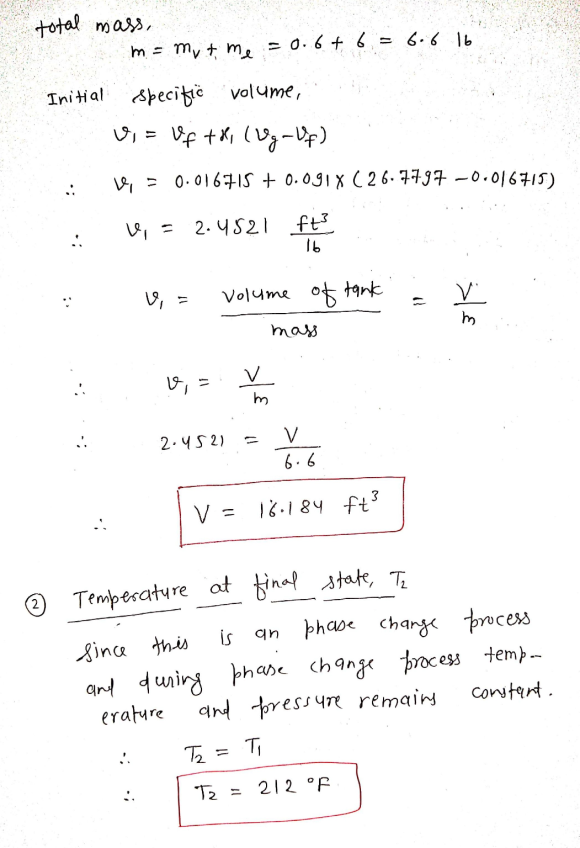 total mass,
m = mᵥ + mₑ = 0.6 + 6 = 6.6 lb
Initial specific volume,
v₁ = vf + x₁ (vg - vf)
∴ v₁ = 0.016715 + 0.091 x (26.7797 - 0.016715)
∴ v₁ = 2.4521 ft³/lb
∵ v₁ = volume of tank / mass = V / m
∴ v₁ = V / m
∴ 2.4521 = V / 6.6
∴ V = 16.184 ft³
② Temperature at final state, T₂
since this is an phase change process
and during phase change process temp-
erature and pressure remains constant.
∴ T₂ = T₁
∴ T₂ = 212 °F